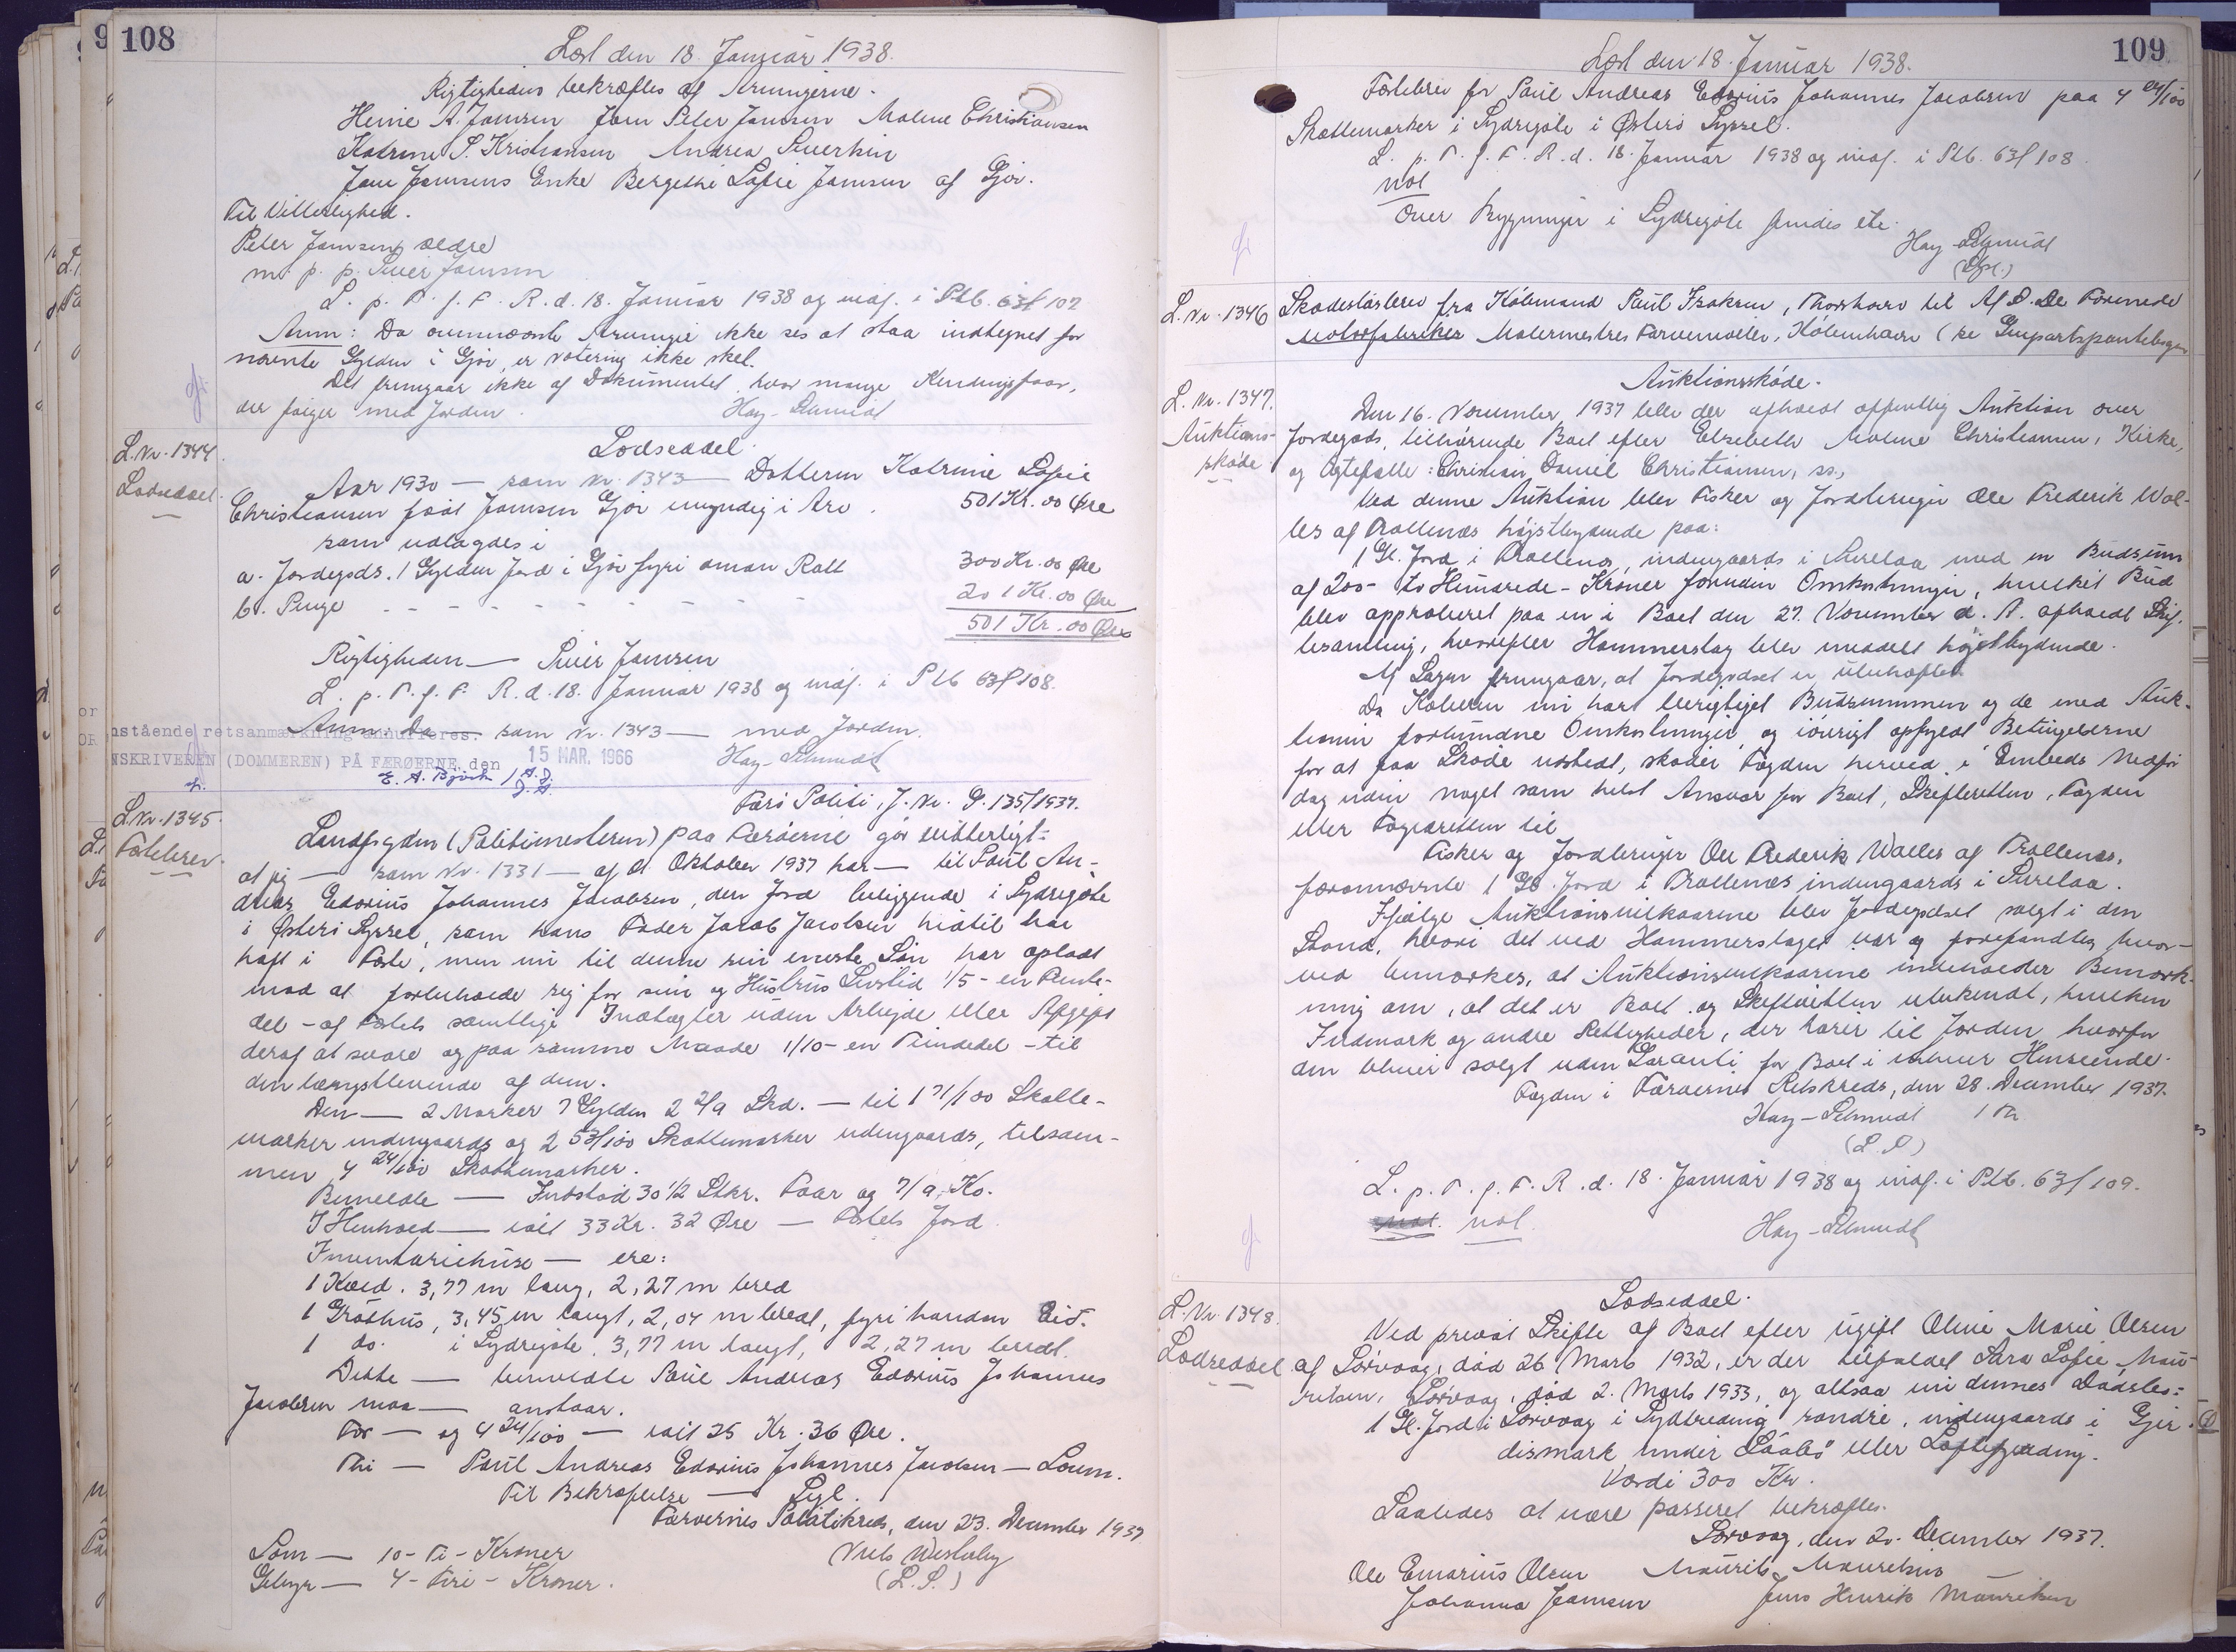 108
Læst den 18. Januar 1938.
Rigtigheden bekræftes af Arvingerne.
Heine A. Joensen Joen Peter Joensen Malene Christiansen
Katrine S. Kristiansen Andrea
Joen Joensens Enke Bergethe Sofie Joensen af Gjov.
Til Vitterlighed.
Peter Joensen ældre
m. p. p. Sivér Joensen
L. p. T. f. F. R. d. 18. Januar 1938 og indf. i Ptb. 63f 102
Anm: Da ovennævnte Arvinger ikke ses at staa indtegnet for
nævnte Gylden i Gjov, er notering ikke sket.
Det fremgaar ikke af Dokumentet, hvor mange Kendingsfaar,
der følger med Jorden. Hay-Schmidt
L. Nr. 1344
Lodseddel.
Lodseddel.
Aar 1930 — som Nr. 1343 — Datteren Katrine Sofie
Christiansen født Joensen Gjov myndig i Arv. 501 Kr. 00 Øre
som udlagdes i
a. Jordegods. 1 Gylden Jord i Gjov fyri oman Rætt 300 Kr. 00 Øre
b. Penge - - - - - - - - 201 Kr. 00 Øre
501 Kr. 00 Øre
Rigtigheden — Sivér Joensen
L. p. T. f. F. R. d. 18. Januar 1938 og indf. i Ptb 63f 108.
Anm: Da — som Nr. 1343 — med Jorden.
nstående retsanmærkning annulleres.
NSKRIVEREN (DOMMEREN) PÅ FÆRØERNE, den 15 MAR. 1966
Hay-Schmidt
E. A. Björk
L. Nr. 1345
Fæstebrev.
Færø Politi, J. Nr. G. 135/1937.
Landfogden (Politimesteren) paa Færøerne gør vitterligt:
at jeg — som Nr. 1331 — af Oktober 1937 har — til Poul An-
dreas Edorius Johannes Jacobsen, den Jord beliggende i Sydregøte
i Østerø Syssel, som hans Fader Jacob Jacobsen hidtil har
haft i Fæste, men nu til denne sin eneste Søn har opladt
mod at forbeholde sig for sin og Hustrus Livstid 1/5 - en Femte-
del - af Fæstets samtlige Indtægter uden Arbejde eller Afgift
deraf at svare og paa samme Maade 1/10 - en Tiendedel - til
den længstlevende af dem.
Den — 2 Marker 7 Gylden 2 2/9 Skd. — til 1 71/100 Skatte-
marker indengaards og 2 53/100 Skattemarker udengaards, tilsam-
men 4 24/100 Skattemarker.
Bemeldte — Indstød 30 1/2 Stkr. Faar og 7/9 Ko.
I Henhold — ialt 33 Kr. 32 Øre — Fæstets Jord
Inventariehuse — ere:
1 Kold. 3,77 m lang, 2,27 m bred
1 Gróthus, 3,45 m langt, 2,04 m bredt, fyri handan Eid.
1 do. i Sydregøte, 3,77 m langt, 2,27 m bredt.
Dette — bemeldte Poul Andreas Edorius Johannes
Jacobsen maa — anstaar.
For — og 4 24/100 — ialt 25 Kr. 36 Øre.
Thi — Poul Andreas Edorius Johannes Jacobsen —
Til Bekræftelse — Segl.
Færøernes Politikreds, den 23. December 1937
Som — 10 - Ti - Kroner
Gebyr — 4 - Fire - Kroner.
Niels Westerby
(L. S.)
109
Læst den 18. Januar 1938.
Fæstebrev for Poul Andreas Edorius Johannes Jacobsen paa 4 24/100
Skattemarker i Sydregøte i Østerø Syssel.
L. p. T. f. F. R. d. 18. Januar 1938 og indf. i Ptb. 63f 108.
not
Over Bygninger i Sydregøte findes etc.
Hay-Schmidt
L. Nr. 1346
Skadesløsbrev fra Købmand Poul Isaksen, Thorshavn til A/S. De Forenede
Motorfabriker Malermestres Farvemølle, København (se Genpartspantebogen
L. Nr. 1347.
Auktions-
skøde
Auktionsskøde.
Den 16. November 1937 blev der afholdt offentlig Auktion over
Jordegods, tilhørende Boet efter Elsebeth Malene Christiansen, Kirke,
og Ægtefælle: Christian Daniel Christiansen, ss.,
Ved denne Auktion blev Fisker og Jordbruger Ole Frederik Wol-
les af Trøllenæs højstbydende paa:
1 Gl. Jord i Trøllenæs, indengaards i Surelaa med en Budsum
af 200 - to Hundrede - Kroner foruden Omkostninger, hvilket Bud
blev approberet paa en i Boet den 27. November d. A. afholdt Skif-
tesamling, hvorefter Hammerslag blev meddelt højstbydende.
Af Sagen fremgaar, at Jordegodset er ubehæftet.
Da Køberen nu har berigtiget Budsummen og de med Auk-
tionen forbundne Omkostninger og iøvrigt opfyldt Betingelserne
for at faa Skøde udstedt, skøder Fogden herved i Embeds Medfør
dog uden noget som helst Ansvar for Boet, Skifteretten, Fogden
eller Fogedretten til
Fisker og Jordbruger Ole Frederik Wolles af Trøllenæs,
forannævnte 1 Gl. Jord i Trøllenæs indengaards i Surelaa.
Ifølge Auktionsvilkaarene blev Jordegodset solgt i den
Stand, hvori det ved Hammerslaget var og forefandtes, hvor-
ved bemærkes, at Auktionsvilkaarene indeholder Bemærk-
ning om, at det er Boet og Skifteretten ubekendt, hvilken
Indmark og andre Rettigheder, der hører til Jorden, hvorfor
den bliver solgt uden Garanti for Boet i enhver Henseende.
Fogden i Færøernes Retskreds, den 28. December 1937.
Hay-Schmidt
(L. S.)
L. p. T. f. F. R. d. 18. Januar 1938 og indf. i Ptb. 63f 109.
not. not.
Hay-Schmidt
L. Nr. 1348.
Lodseddel
Lodseddel.
Ved privat Skifte af Boet efter ugift Oline Marie Olsen
af Sørvaag, død 26 Marts 1932, er der tilfaldet Sara Sofie Mau-
ritsen, Sørvaag, død 2. Marts 1933, og altsaa nu dennes Dødsbo:
1 Gl. Jord i Sørvaag i Sydtreding søndre, indengaards i Gjer-
dismark under
Værdi 300 Kr.
Saaledes at være passeret bekræftes.
Sørvaag, den 20. December 1937.
Ole Emarius Olsen Maurits Mauritsen
Johanna Joensen Jens Henrik Mauritsen